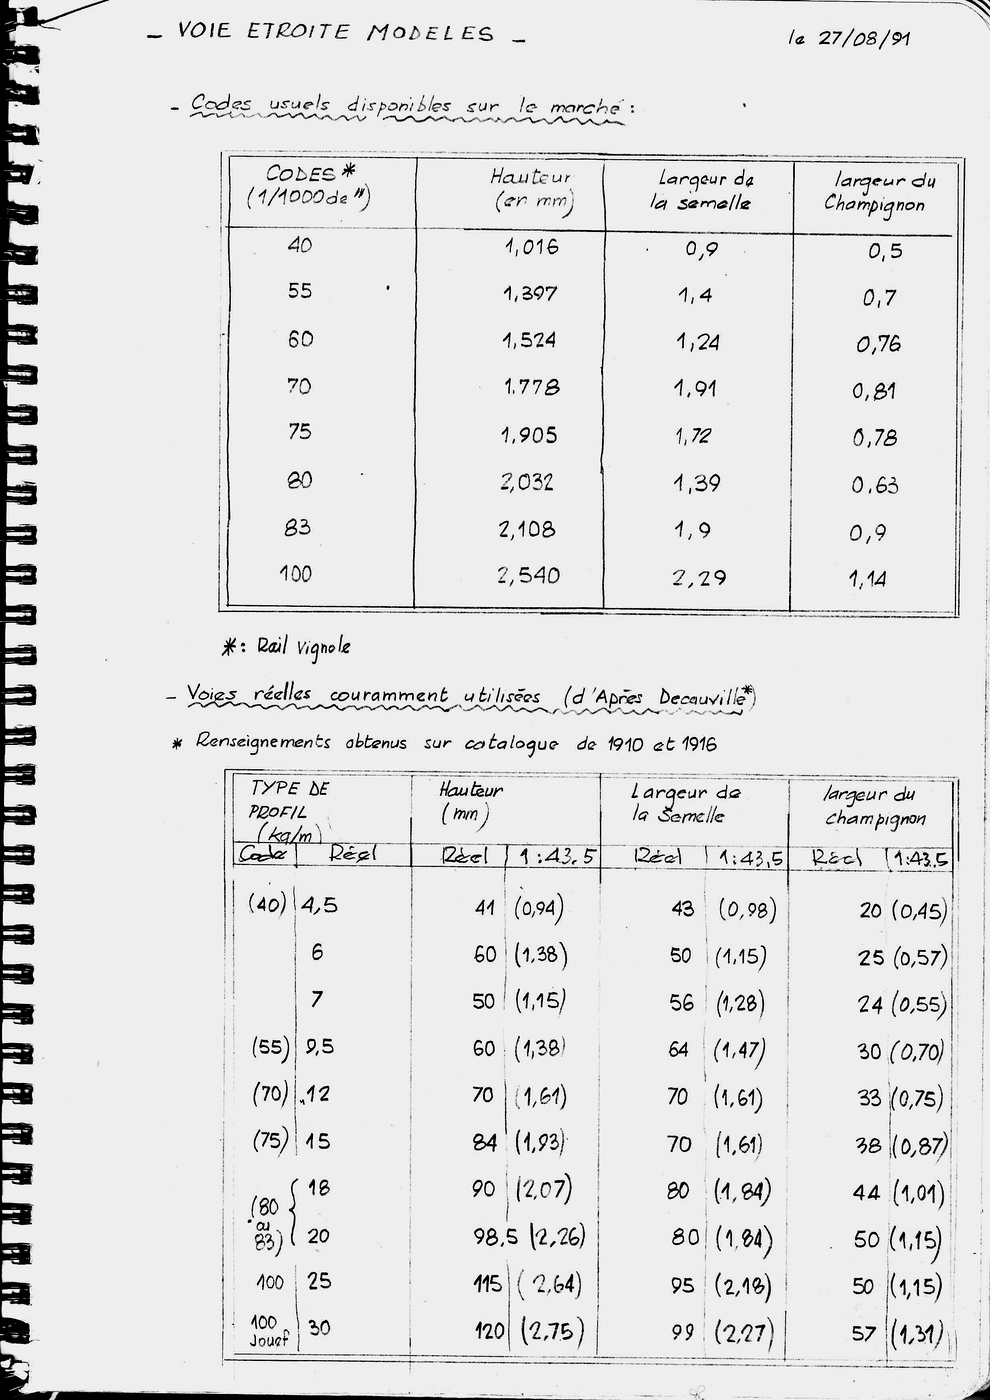 - VOIE ETROITE MODELES -
le 27/08/91
- Codes usuels disponibles sur le marché :
CODES * Hauteur Largeur de largeur du
(1/1000 de ") (en mm) la semelle Champignon
40 1,016 0,9 0,5
55 1,397 1,4 0,7
60 1,524 1,24 0,76
70 1.778 1,91 0,81
75 1,905 1,72 0,78
80 2,032 1,39 0.63
83 2,108 1,9 0,9
100 2,540 2,29 1,14
* : Rail Vignole
- Voies réelles couramment utilisées (d'Après Decauville*)
* Renseignements obtenus sur catalogue de 1910 et 1916
TYPE DE Hauteur Largeur de largeur du
PROFIL (mm) la Semelle champignon
(kg/m)
Code Réel Réel 1:43,5 Réel 1:43,5 Réel 1:43.5
(40) 4,5 41 (0,94) 43 (0,98) 20 (0,45)
6 60 (1,38) 50 (1,15) 25 (0,57)
7 50 (1,15) 56 (1,28) 24 (0,55)
(55) 9,5 60 (1,38) 64 (1,47) 30 (0,70)
(70) 12 70 (1,61) 70 (1,61) 33 (0,75)
(75) 15 84 (1,93) 70 (1,61) 38 (0,87)
(80 18 90 (2,07) 80 (1,84) 44 (1,01)
ou
83) 20 98,5 (2,26) 80 (1,84) 50 (1,15)
100 25 115 (2,64) 95 (2,18) 50 (1,15)
100 30 120 (2,75) 99 (2,27) 57 (1,31)
Jouef